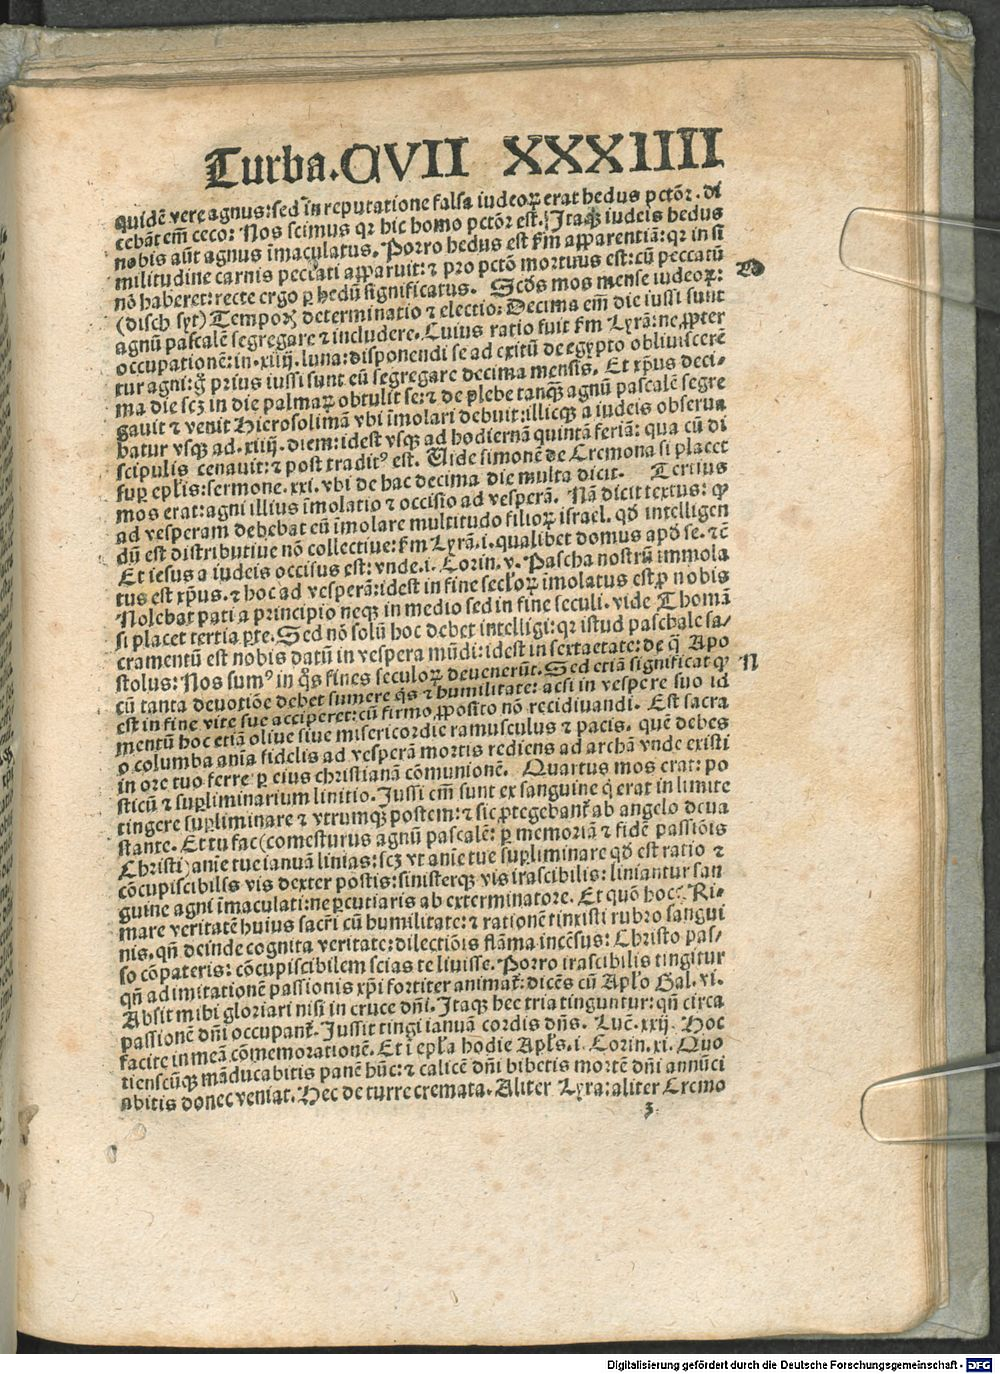 Turba. QVII XXXIIII
quidē vere agnus: sed in reputatione falsa iudeoꝝ erat hedus pctōr. di
cebāt em̄ ceco: Nos scimus qꝛ hic homo pctōr est. Itaqꝫ iudeis hedus
nobis aūt agnus īmaculatus. Porro hedus est fm̄ apparentiā: qꝛ in si
militudine carnis peccati apparuit: ⁊ pro pctō mortuus est: cū peccatū
nō haberet: recte ergo ꝑ hedū significatus. Scd̄s mos mense iudeoꝝ:
(disch syt) Tempoꝝ determinatio ⁊ electio: Decima em̄ die iussi sunt
agnū pascalē segregare ⁊ includere. Cuius ratio fuit fm̄ Lyrā: ne ꝓpter
occupationē: in .xiiij. luna: disponendi se ad exitū de egypto obliuiscerē
tur agni: g̃ prius iussi sunt eū segregare decima mensis. Et xp̄us deci-
ma die scꝫ in die palmaꝝ obtulit se: ⁊ de plebe tanqꝫ agnū pascalē segre
gauit ⁊ venit Hierosolimā vbi īmolari debuit: illicqꝫ a iudeis obserua
batur vsqꝫ ad .xiiij. diem: idest vsqꝫ ad hodiernā quintā feriā: qua cū di
scipulis cenauit: ⁊ post traditꝰ est. Vide simonē de Cremona si placet
suꝑ ep̄lis: sermone .xxi. vbi de hac decima die multa dicit. Tertius
mos erat: agni illius īmolatio ⁊ occisio ad vesperā. Nā dicit textus: ꝙ
ad vesperam debebat eū īmolare multitudo filioꝝ israel. qd̄ intelligen
dū est distributiue nō collectiue: fm̄ Lyrā .i. qualibet domus apd̄ se. ⁊c̄
Et iesus a iudeis occisus est: vnde .i. Corin. v. Pascha nostrū immola
tus est xp̄us. ⁊ hoc ad vesperā: idest in fine seclōꝝ imolatus est ꝓ nobis
Nolebat pati a principio neqꝫ in medio sed in fine seculi. vide Thomā
si placet tertia ꝑte. Sed nō solū hoc debet intelligi: qꝛ istud paschale sa-
cramentū est nobis datū in vespera mūdi: idest in sexta etate: de q̄ Apo
stolus: Nos sumꝰ in q̄s fines seculoꝝ deuenerūt. Sed etiā significat ꝙ
cū tanta deuotiōe debet sumere q̄s ⁊ humilitate: acsi in vespere suo id
est in fine vite sue acciperet: cū firmo ꝓposito nō recidiuandi. Est sacra
mentū hoc etiā oliue siue misericordie ramusculus ⁊ pacis. quē debes
o columba aīa fidelis ad vesperā mortis rediens ad archā vnde existi
in ore tuo ferre ꝑ eius christianā cōmunionē. Quartus mos erat: po
sticū ⁊ suꝑliminarium linitio. Iussi em̄ sunt ex sanguine q̄ erat in limite
tingere suꝑliminare ⁊ vtrumqꝫ postem: ⁊ sic ꝓtegebanť ab angelo deua
stante. Et tu fac (comesturus agnū pascalē: ꝑ memoriā ⁊ fidē passiōis
Christi) anīe tue ianuā linias: scꝫ vt anīe tue suꝑliminare qd̄ est ratio ⁊
cōcupiscibilis vis dexter postis: sinisterqꝫ vis irascibilis: liniantur san
guine agni īmaculati: ne ꝑcutiaris ab exterminatore. Et quō hoc: Ri-
mare veritatē huius sacrī cū humilitate: ⁊ rationē tinxisti rubro sangui
nis. qn̄ deinde cognita veritate: dilectiōis flāma incēsus: Christo pas-
so cōpateris: cōcupiscibilem scias te liuisse. Porro irascibilis tingitur
qn̄ ad imitationē passionis xp̄i fortiter animať: dicēs cū Apl̄o Gal. vi.
Absit mihi gloriari nisi in cruce dn̄i. Itaqꝫ hec tria tinguntur: qn̄ circa
passionē dn̄i occupanť. Iussit tingi ianuā cordis dn̄s. Luc̄. xxij. Hoc
facite in meā cōmemorationē. Et i epl̄a hodie Apl̄s .i. Corin. xi. Quo
tienscūqꝫ māducabitis panē hūc: ⁊ calicē dn̄i bibetis mortē dn̄i annūci
abitis donec veniat. Hec de turre cremata. Aliter Lyra: aliter Cremo
D
N
3
Digitalisierung gefördert durch die Deutsche Forschungsgemeinschaft - DFG